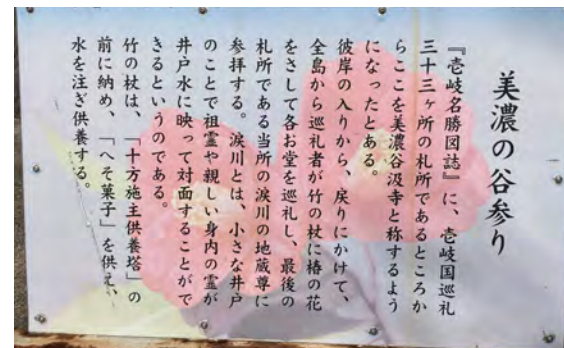 美濃の谷参り
『壱岐名勝図誌』に、壱岐国巡礼
三十三ヶ所の札所であるところか
らここを美濃谷汲寺と称するよう
になったとある。
彼岸の入りから、戻りにかけて、
全島から巡礼者が竹の杖に椿の花
をさして各お堂を巡礼し、最後の
札所である当所の涙川の地蔵尊に
参拝する。涙川とは、小さな井戸
のことで祖霊や親しい身内の霊が
井戸水に映って対面することがで
きるというのである。
竹の杖は、「十方施主供養塔」の
前に納め、「へそ菓子」を供え、
水を注ぎ供養する。